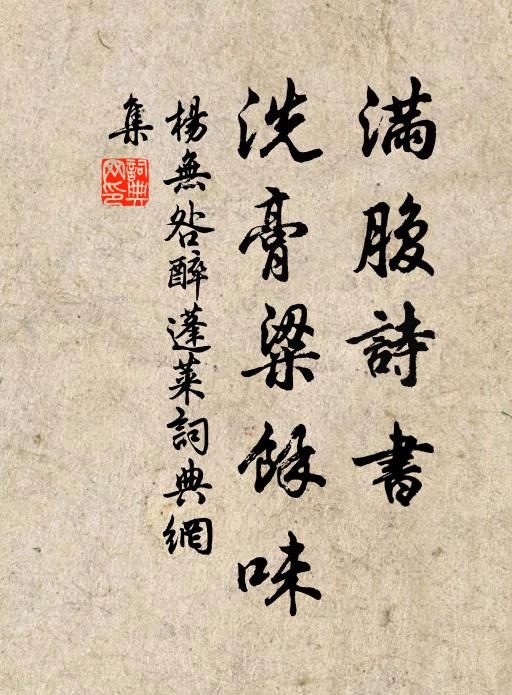 滿腹詩書
洗膏粱餘味
楊無咎醉蓬萊詞典網
集
詞典
网印